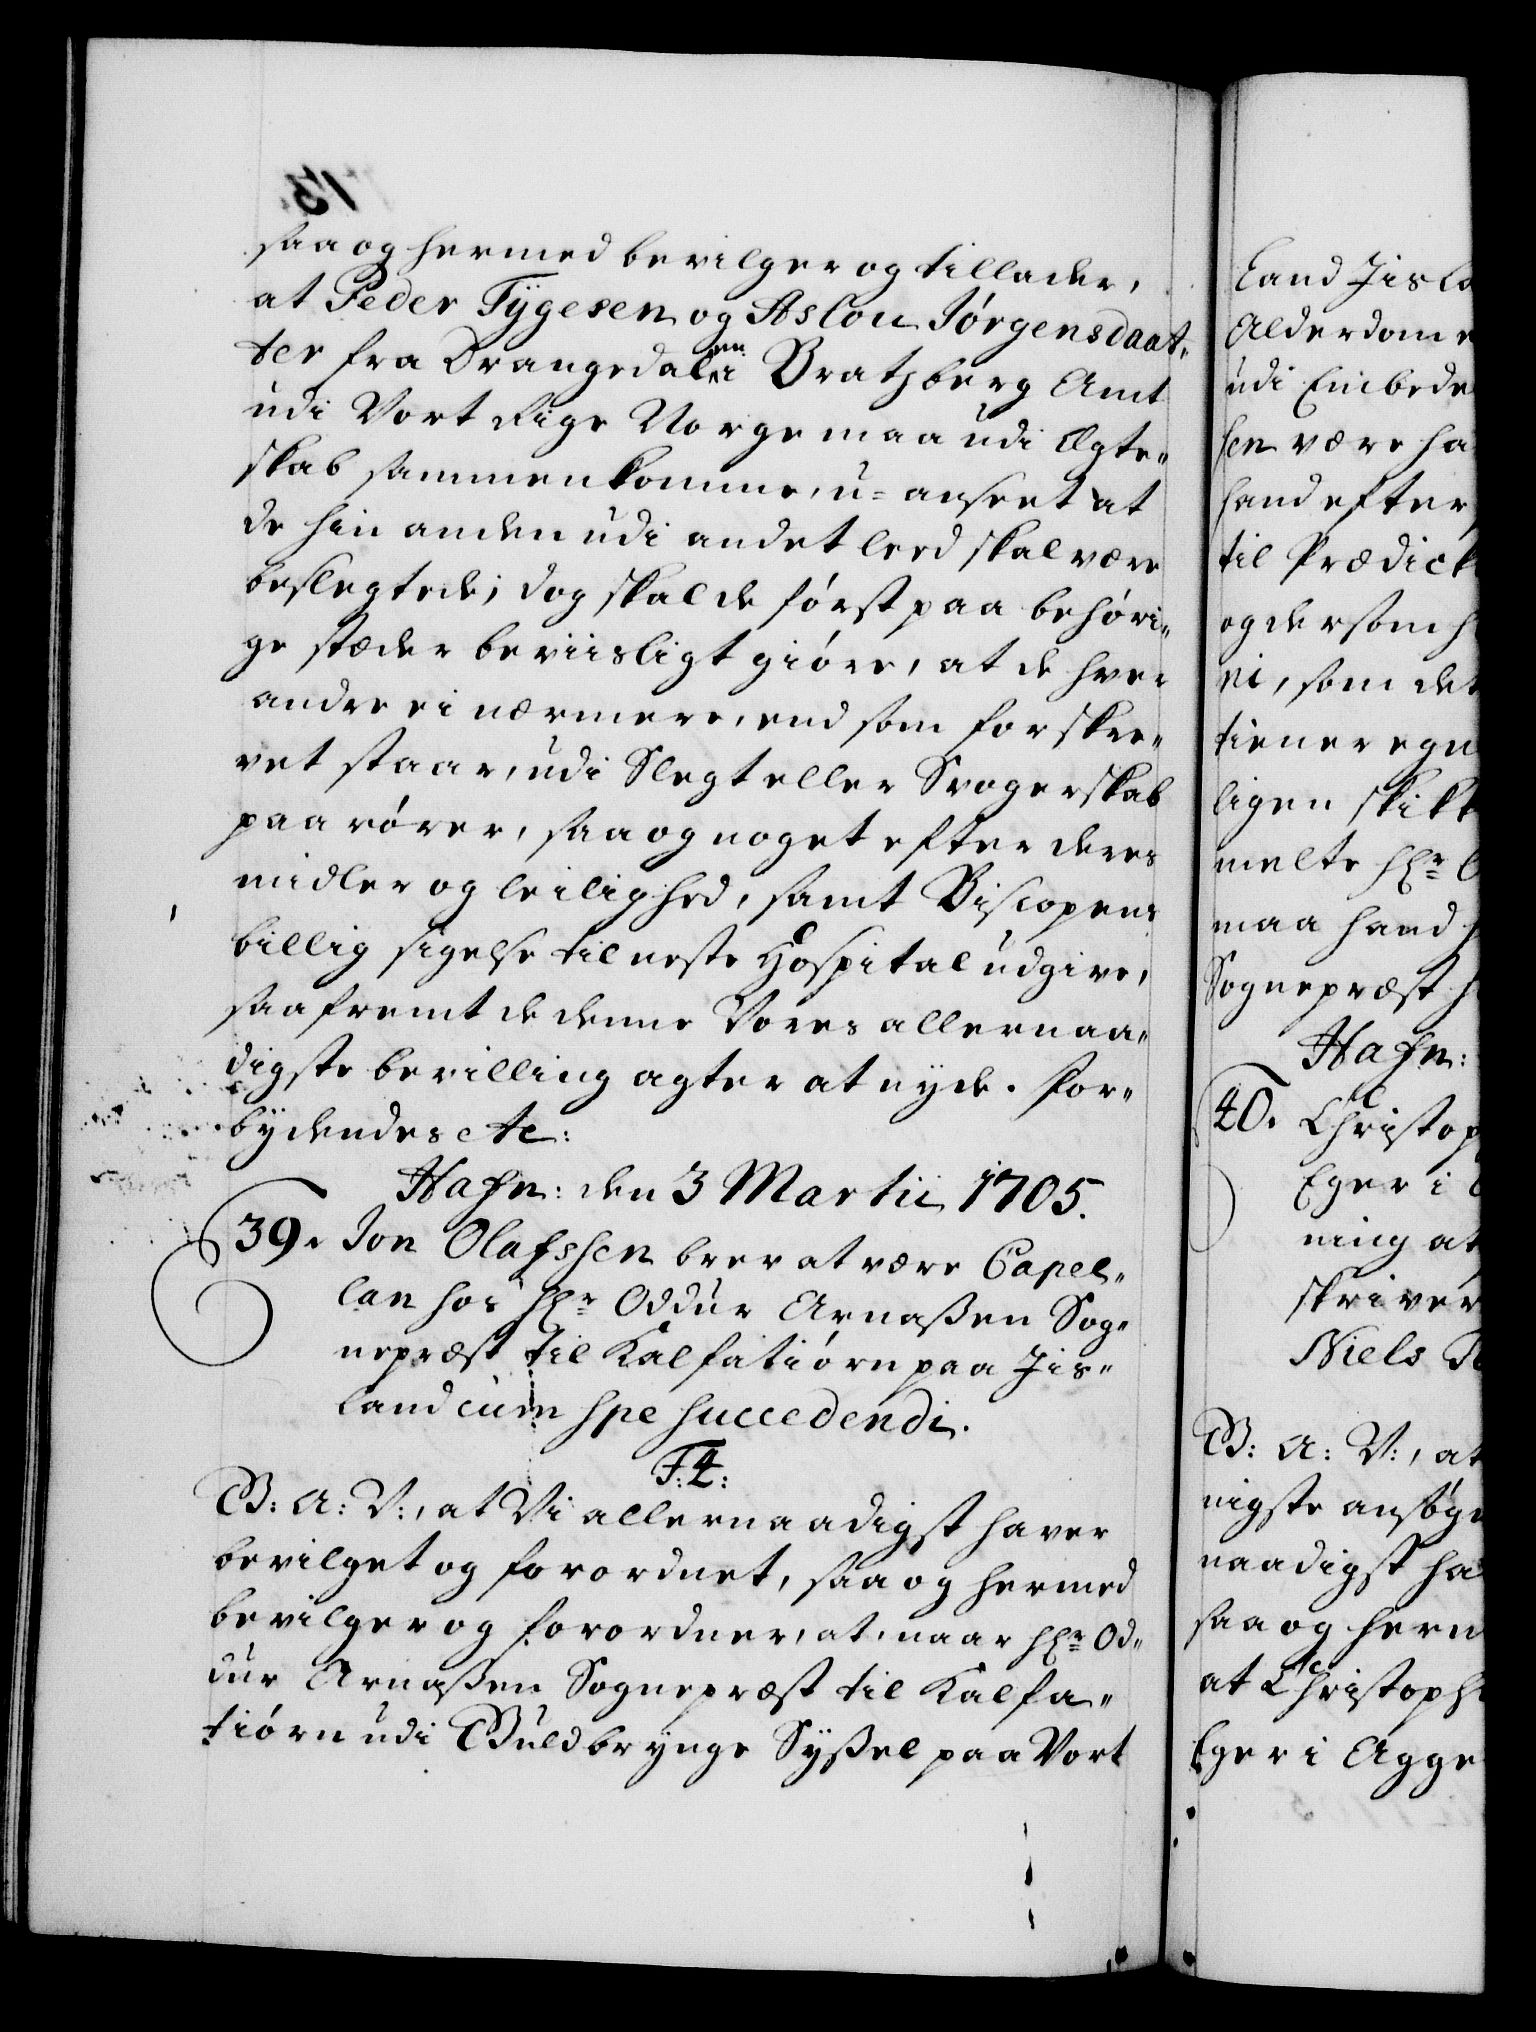 saa og hermed bevilger og tillader,
at Peder Tÿgesen og Aslou Jørgensdaat„
ter fra Drangedalen i Bratsberg Amt
udi Vort Rige Norge maa udi Egte„
skab sammenkomme, u=anseet at
de hin anden udi andet leed skal være
beslegtede; dog skal de først paa behøri„
ge stæder beviisligt giøre, at de hver
andre ei nærmere, end som forskre„
vet staar, udi Slegt eller Svogerskab
paarører, saa og noget efter deres
midler og leilighed, samt Biscopens
billig sigelse til neste Hospital udgive,
saafremt de denne Vores allernaa„
digste bevilling agter at nyde. For„
bydendes etc:
Hafn: den 3 Martii 1705.
39. Jon Olafssen brev at være Capel„
lan hos Hr Oddur Arnaßen Sog„
nepræst til Kalfatiørn paa Jis„
land cum spe succedendi.
F. 4:
G: A: V:, at Vi allernaadigst haver
bevilget og forordnet, saa og hermed
bevilger og forordner, at, naar Hr Od„
dur Arnaßen Sognepræst til Kalfa„
tiørn udi Guldbrynge Syßel paa Vort
Land Jisla
Alderdom
udi Embede
sen være ha
hand efter
til Prædick
og dersom h
ei, som det
tiener egn
ligen skikk
melte Hr O
maa hand
Sognepræst
Hafn:
40. Christop
Eger i
ning at
skriver
Niels
G: A: V:, at
nigste ansøg
naadigst ha
saa og herm
at Christoph
Eger i Agge